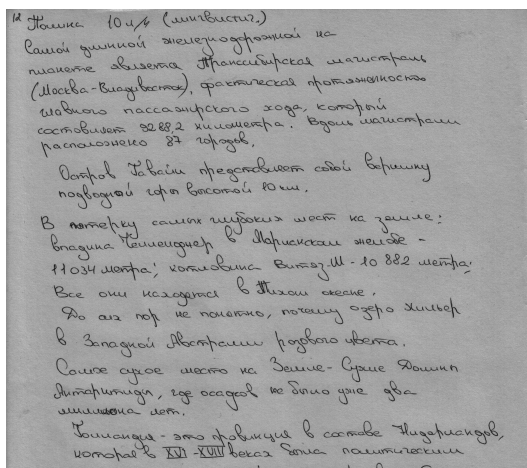 12 Полина 10 л/н (лингвистич.)
Самой длинной железнодорожной на
планете является Транссибирская магистраль
(Москва-Владивосток), фактическая протяженность
главного пассажирского хода, который
составляет 9288,2 километра. Вдоль магистрали
расположено 87 городов.
Остров Гавайи представляет собой вершину
подводной горы высотой 10 км.
В пятерку самых глубоких мест на земле:
впадина Челленджер в Марианском желобе -
11034 метра; котловина Витязь-II - 10 882 метра;
Все они находятся в Тихом океане.
До сих пор не понятно, почему озеро Хильер
в Западной Австралии розового цвета.
Самое сухое место на Земле - Сухие Долины
Антарктиды, где осадков не было уже два
миллиона лет.
Голландия - это провинция в составе Нидерландов,
которая в XVI - XVII веках была политическим